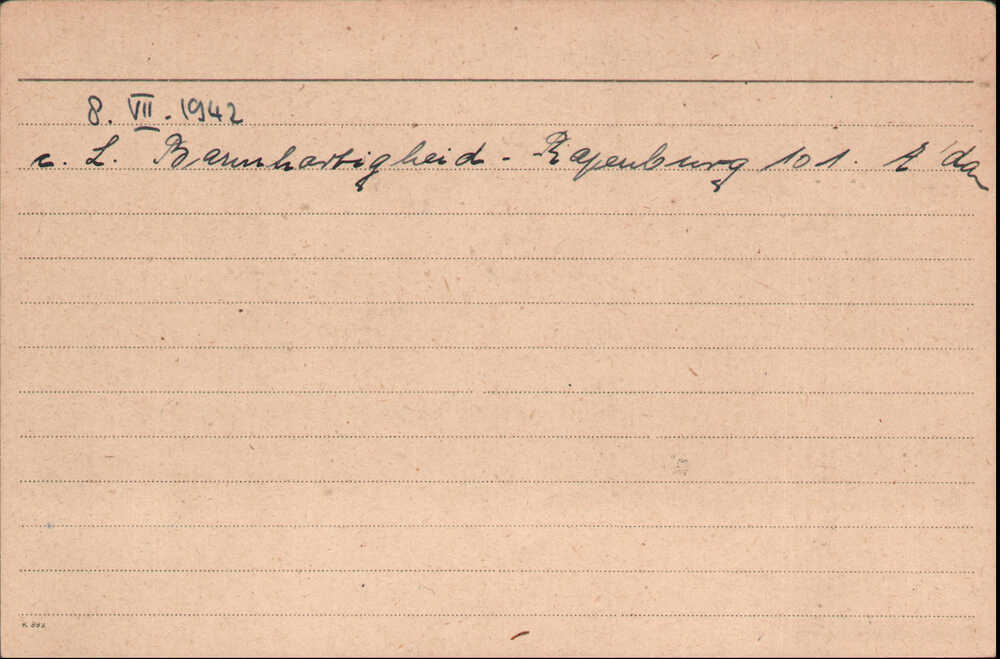 8. VII. 1942
c. L. Barmhartigheid - Rapenburg 101. A'dam
K. 892